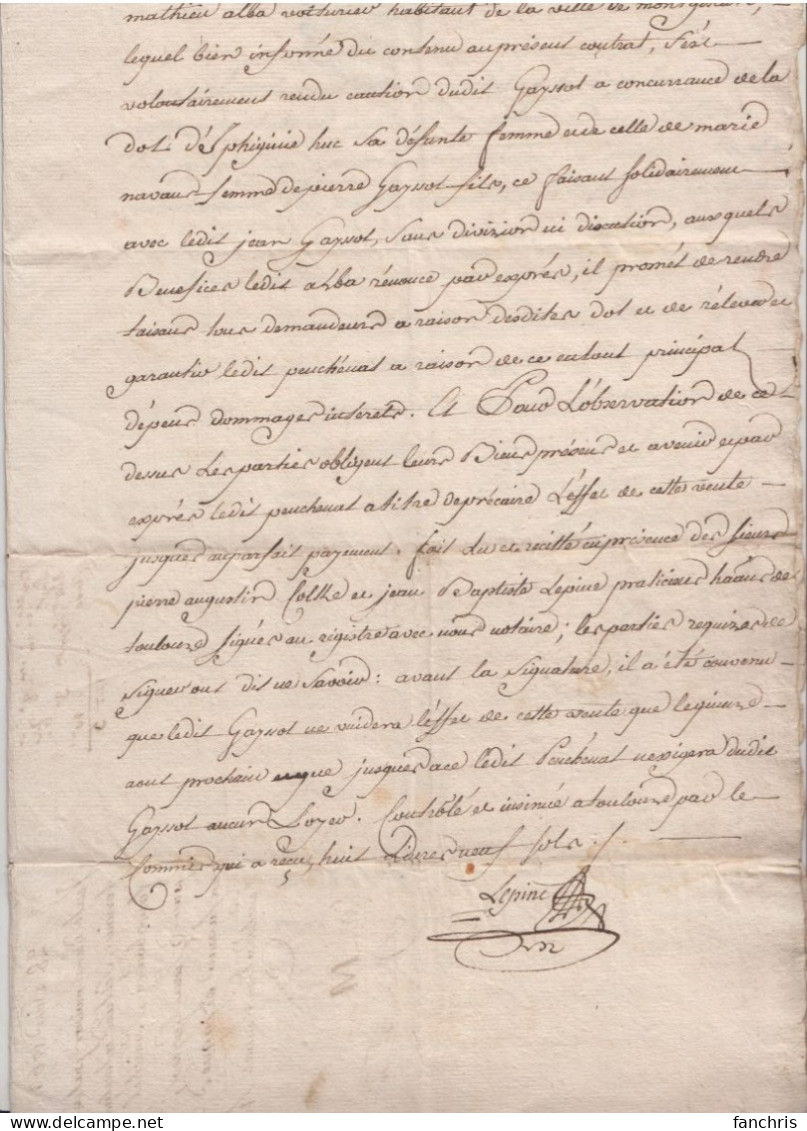 mathieu alba voiturier habitant de la ville de
lequel bien informé du contenu au présent contrat, s'est
volontairement rendu caution dudit Gayssot a concurrance de la
dot d'Ephiginie huc sa défunte femme et de celle de marie
navaus femme de pierre Gayssot fils, ce faisant solidairement
avec ledit jean Gayssot, sans divizion ni discution, auxquels
Benefices ledit alba rénonce par exprés, il promét de rendre
taisans tous demandeurs a raison desdites dot et de rélever et
garantir ledit peuchénat a raison de ce en tout principal
dépens dommages interets. Et Pour L'observation de ce
dessus Les parties obligent leurs Biens présens et avenir et par
exprés ledit peuchenat a titre de précaire L'effet de cette vente
jusques au parfait payement. fait Lu et recitté en présence des sieurs
pierre augustin et jean Baptiste Lepine praticiens haans de
toulouse signés au régistre avec nous notaire; les parties requizes de
signer ont dit ne savoir: avant la signature, il a été convenu
que ledit Gayssot ne vuidera l'éffet de cette vente que le quinze
aout prochain et que jusques a ce ledit Peuchenat n'exigera dudit
Gayssot aucun Loyer. Contrôlé et insinué a toulouse par le
Commis qui a reçu huit Livres neuf sols.
Lepine
fanchris